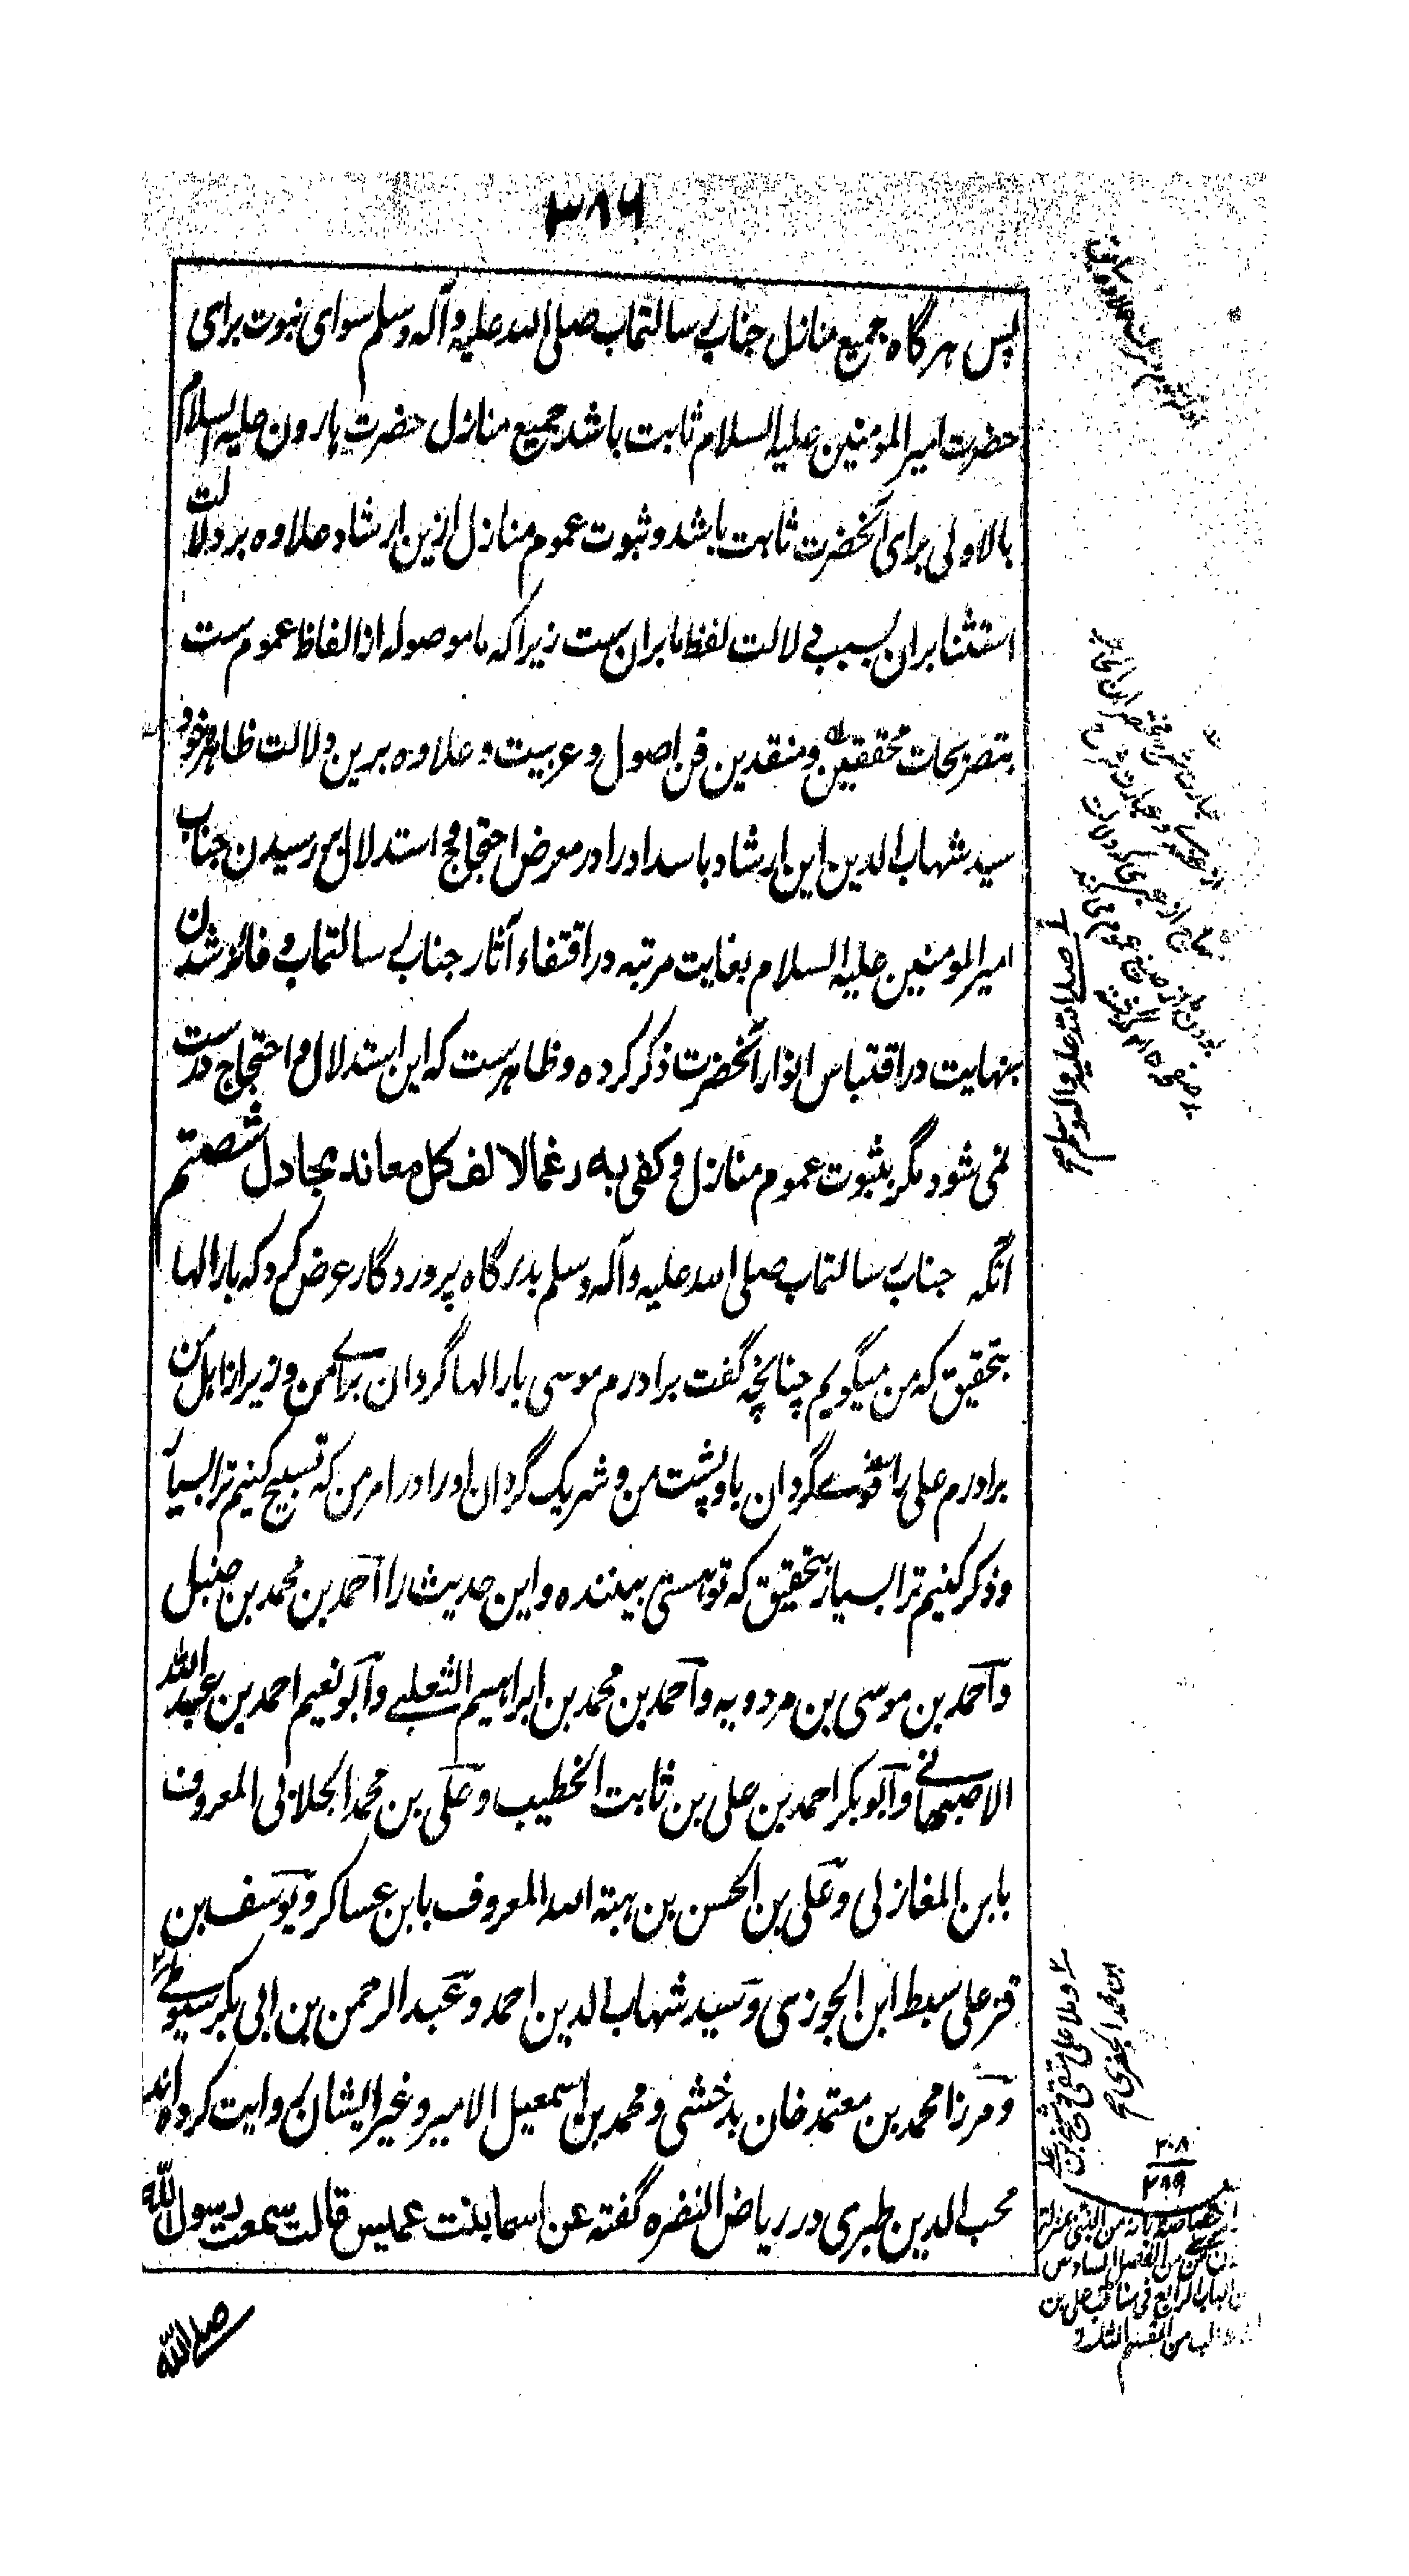 ۳۸۶
پس هرگاه جمیع منازل جناب رسالتمآب صلی الله علیه وآله وسلم سوای نبوت برای
حضرت امیر المومنین علیه السلام ثابت باشد جمیع منازل حضرت هارون علیه السلام
بالاولی برای آنحضرت ثابت باشد و ثبوت عموم منازل ازین ارشاد علاوه بر دلالت
استثنا بران بسبب دلالت لفظ ما بران ست زیرا که ما موصوله از الفاظ عموم ست
بتصریحات محققین و منقدین فن اصول و عربیت و علاوه برین دلالت ظاهره خود
سید شهاب الدین این ارشاد باسداد را در معرض احتجاج و استدلال بر رسیدن جناب
امیر المومنین علیه السلام بغایت مرتبه در اقتفاء آثار جناب رسالتمآب و فائز شدن
بنهایت در اقتباس انوار آنحضرت ذکر کرده و ظاهرست که این استدلال و احتجاج درست
نمی شود مگر بثبوت عموم منازل و کفی به رغما لانف کل معاند مجادل شصتم
آنکه جناب رسالتمآب صلی الله علیه وآله وسلم بدرگاه پروردگار عرض کرد که بار الها
بتحقیق که من میگویم چنانچه گفت برادرم موسی بار الها گردان برای من وزیر از اهل من
برادرم علی را قوی گردان باو پشت من و شریک گردان او را در امر من که تسبیح کنیم ترا بسیار
و ذکر کنیم ترا بسیار بتحقیق که تو هستی بیننده و این حدیث را احمد بن محمد بن حنبل
و احمد بن موسی بن مردویه و احمد بن محمد بن ابراهیم الثعلبی و ابو نعیم احمد بن عبد الله
الاصبهانی و ابو بکر احمد بن علی بن ثابت الخطیب و علی بن محمد الجلابی المعروف
بابن المغازلی و علی بن الحسن بن هبة الله المعروف بابن عساکر و یوسف بن
قزعلی سبط ابن الجوزی و سید شهاب الدین احمد و عبد الرحمن بن ابی بکر سیوطی ۲
و مرزا محمد بن معتمد خان بدخشی و محمد بن اسمعیل الامیر و غیر ایشان روایت کرده اند
محب الدین طبری در ریاض النضره گفته عن اسما بنت عمیس قالت سمعت رسول الله
صلی الله
صلی الله علیه واله وسلم
۳۰۸
۲۹۹
من الفصل السادس
الباب الرابع فی مناقب علی بن
من القسم الثانی